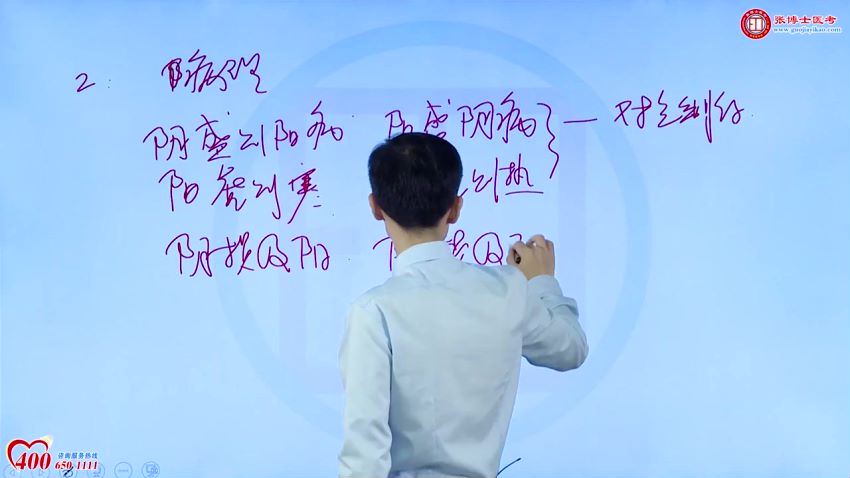 张博士医考
www.guojiayikao.com
2: 病理
阴盛则阳病 阳盛阴病 — 对立制约
阳虚则寒 则热
阴损及阳 损及
咨询服务热线
400 650 1111